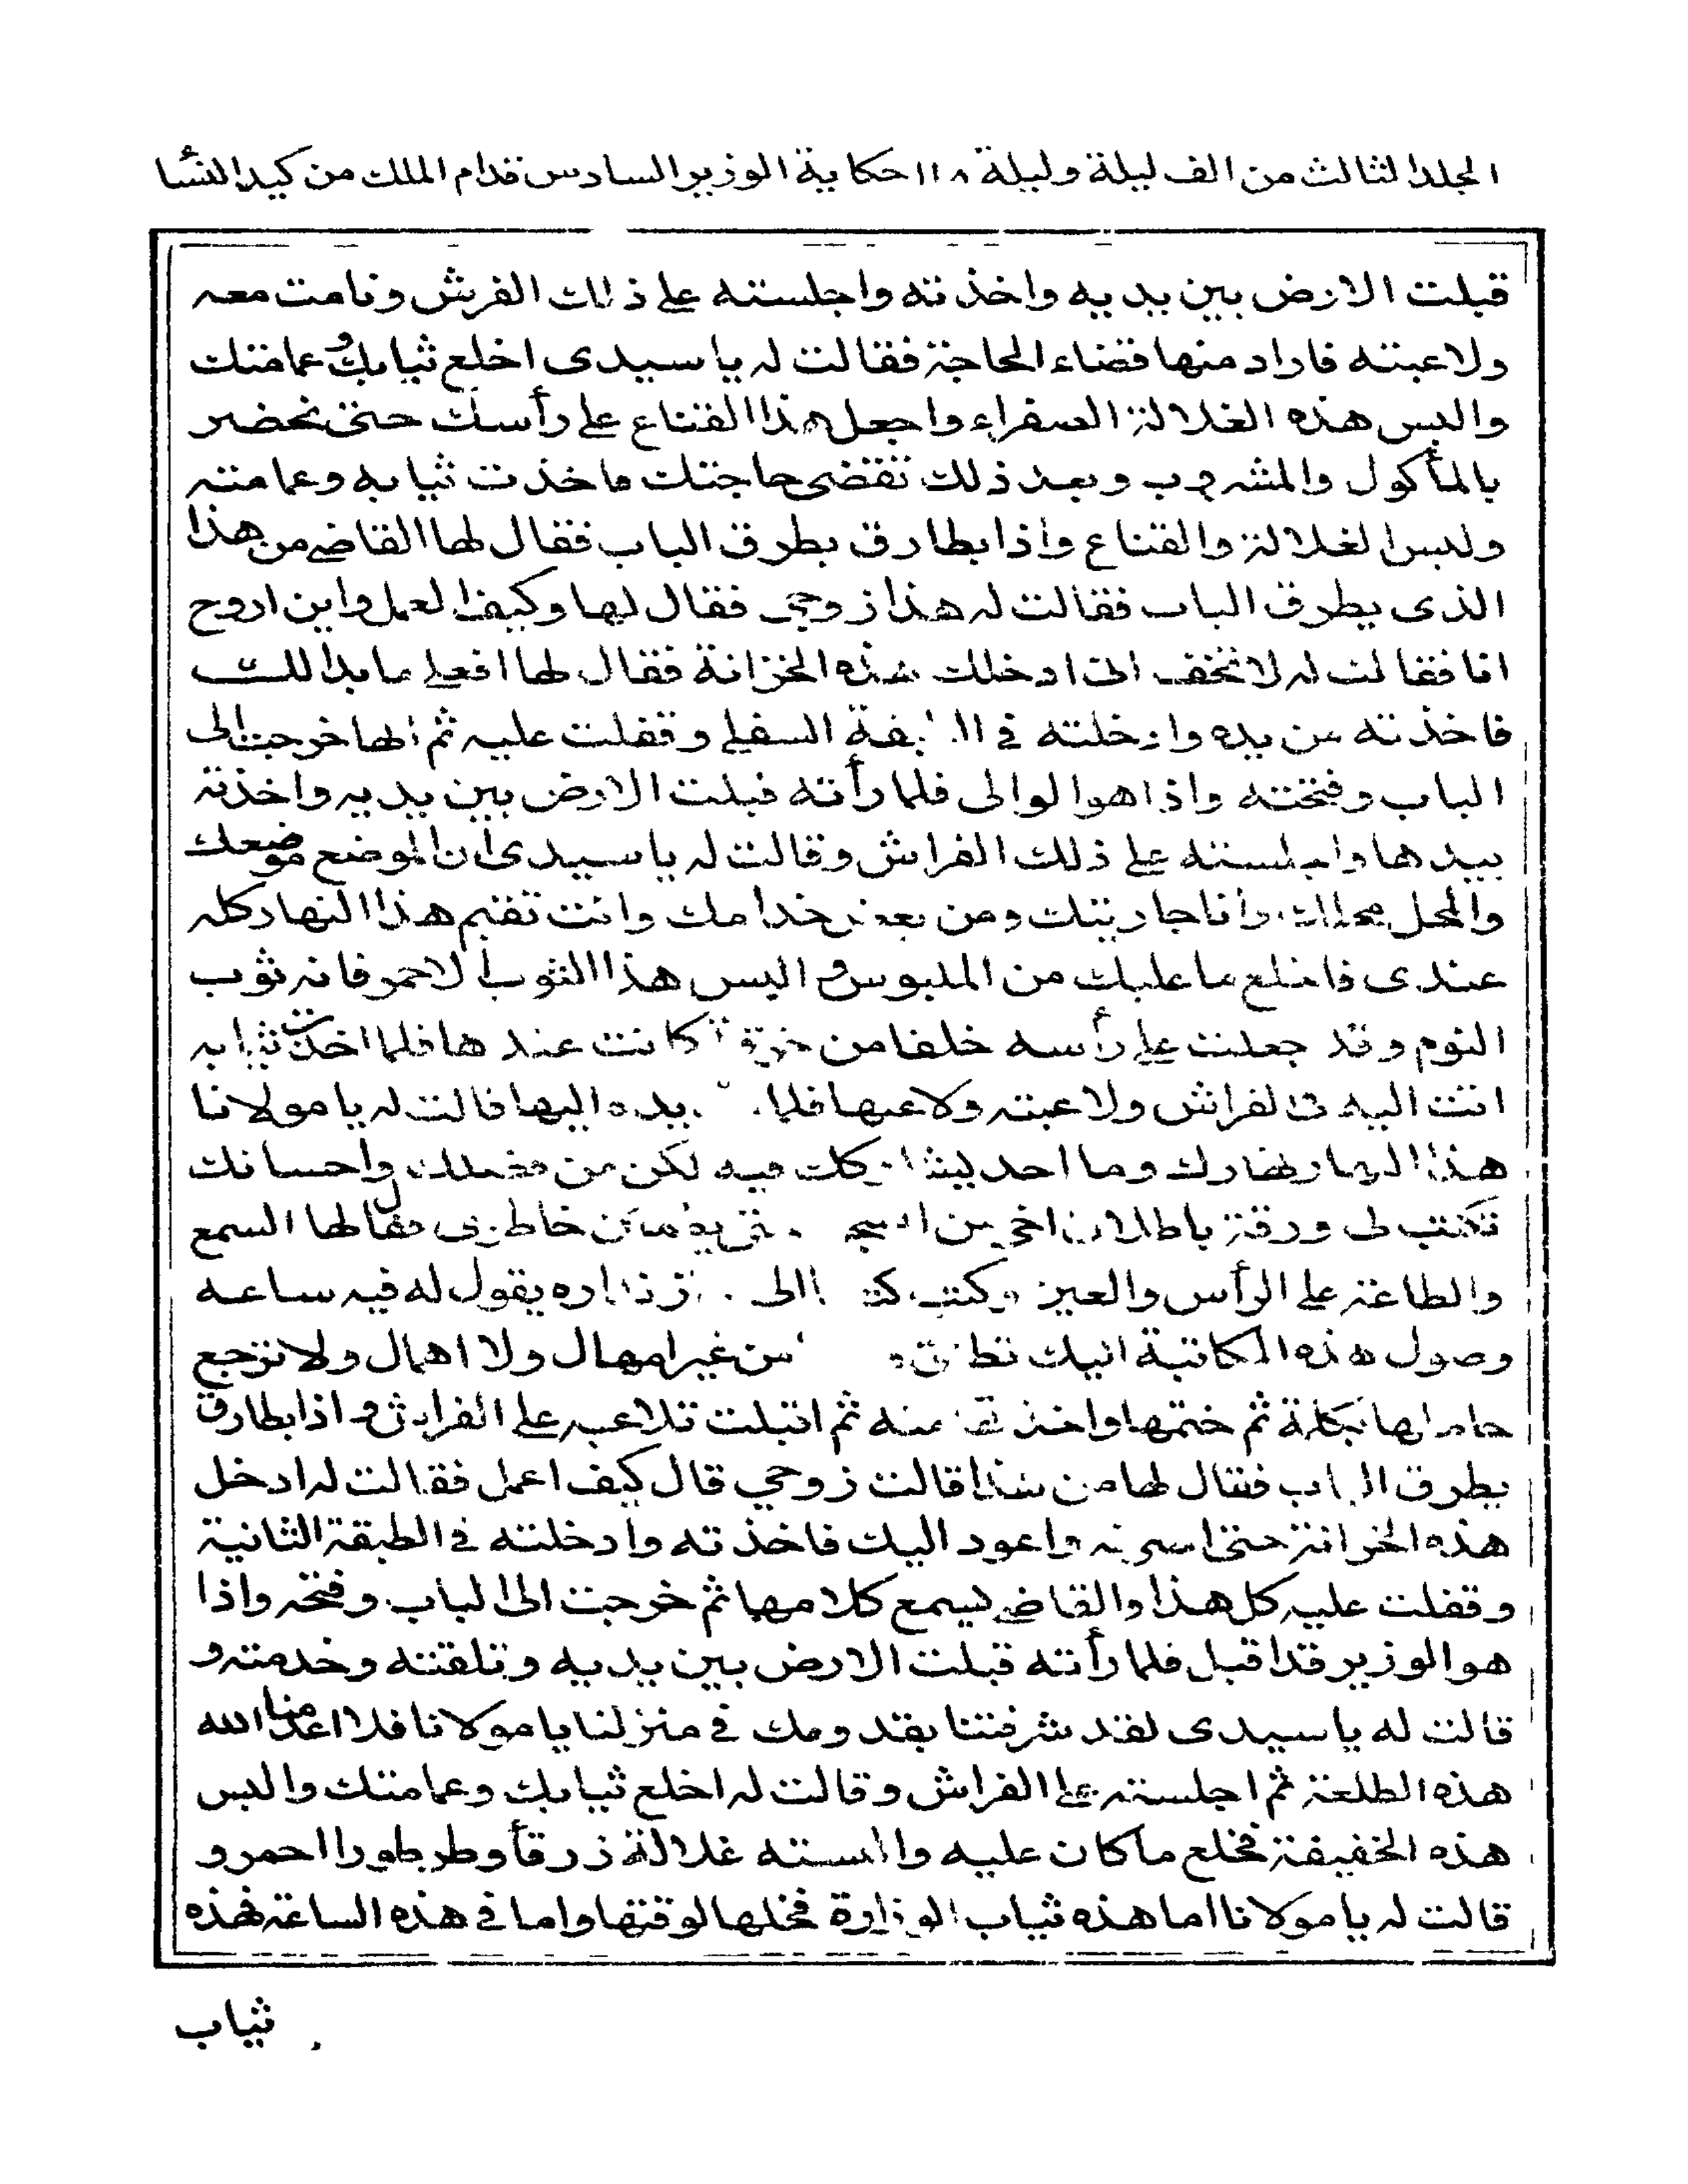 المجلد الثالث من الف ليلة وليلة ١١٨ حكاية الوزير السادس قدام الملك من كيد النسأ
قبلت الارض بين يديه واخذته واجلسته على ذلك الفرش ونامت معه
ولاعبته فاراد منها قضاء الحاجة فقالت له يا سيدى اخلع ثيابك وعمامتك
والبس هذه الغلالة الصفراء واجعل هذا القناع على رأسك حتى نحضر
بالمأكول والمشروب وبعد ذلك تقضى حاجتك فاخذت ثيابه وعمامته
ولبس الغلالة والقناع واذا بطارق يطرق الباب فقال لها القاضى من هذا
الذى يطرق الباب فقالت له هذا زوجى فقال لها وكيف العمل واين اروح
انا فقالت له لا تخف انى ادخلك هذه الخزانة فقال لها افعلى ما بدا لك
فاخذته من يده وادخلته فى السفلى وقفلت عليه ثم انها خرجت الى
الباب وفتحته واذا هو الوالى فلما رأته قبلت الارض بين يديه واخذته
بيدها واجلسته على ذلك الفراش وقالت له يا سيدى ان الموضع موضعك
والمحل محلك وأنا جاريتك ومن بعض خدامك وانت تقيم هذا النهار كله
عندى فاخلع ما عليك من الملبوس و البس هذا الثوب الاحمر فانه ثوب
النوم وقد جعلت على رأسه خلقا من خرقة كانت عندها فلما اخذت ثيابه
اتت اليه فى الفراش ولاعبته ولاعبها فلما يده اليها قالت له يا مولانا
هذا النهار نهارك وما احد يشاركك فيه لكن من فضلك واحسانك
تكتب لى ورقة باطلاق اخى من السجن حتى يطمئن خاطرى فقال لها السمع
والطاعة على الرأس والعين وكتب الى يقول له فيه ساعه
وصول هذه المكاتبة اليك تطلق من غير امهال ولا اهمال ولا تراجع
حاملها بكلمة ثم ختمها واخذتها منه ثم اقبلت تلاعبه على الفراش واذا بطارق
يطرق الباب فقال لها من هذا قالت زوجى قال كيف اعمل فقالت له ادخل
هذه الخزانة حتى اصرفه واعود اليك فاخذته وادخلته فى الطبقة الثانية
وقفلت عليه كل هذا والقاضى يسمع كلامها ثم خرجت الى الباب وفتحه واذا
هو الوزير قد اقبل فلما رأته قبلت الارض بين يديه وتلقته وخدمته و
قالت له يا سيدى لقد شرفتنا بقدومك فى منزلنا يا مولانا فلا اعدمنا الله
هذه الطلعة ثم اجلسته على الفراش وقالت له اخلع ثيابك وعمامتك والبس
هذه الخفيفة فخلع ما كان عليه والبسته غلالة زرقأ وطرطورا احمر و
قالت له يا مولانا اما هذه ثياب الوزارة فخلها لوقتها واما فى هذه الساعة فهذه
ثياب